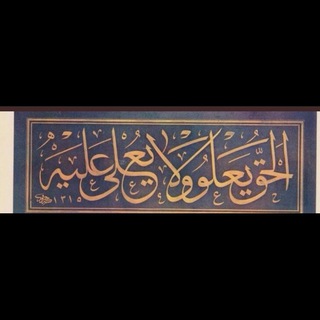 الحق يعلو ولا يعلى عليه
١٣١٥